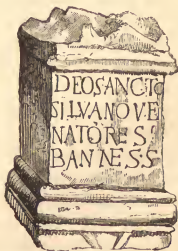 DEOSANCTO
SILVANOVE
NATORES
BANNESS